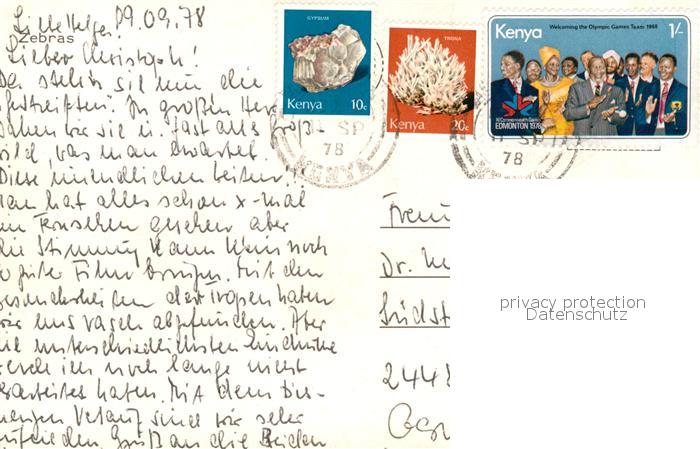 09.09.78
Zebras
Lieber Christoph!
Da stehen sie nun die
Gestreiften. In großen Her
sie in fast alles groß
wild, was man erwartet.
Diese unendlichen Weiten!!
Man hat alles schon x-mal
im Fernsehen gesehen aber
die Stimmung kann kein noch
so guter Film bringen. Mit den
Besonderheiten der Tropen haben
wir uns rasch abgefunden. Aber
die unterschiedlichsten Eindrücke
werde ich noch lange nicht
verarbeitet haben. Mit dem bis-
herigen Verlauf sind wir sehr
zufrieden. Gruß an die Beiden
GYPSUM
Kenya 10c
TRONA
Kenya 20c
Kenya
Welcoming the Olympic Games Team 1968
1/-
XI Commonwealth Games
EDMONTON 1978
SP
78
KENYA
SP
78
Dr.
Südst
2448
privacy protection
Datenschutz